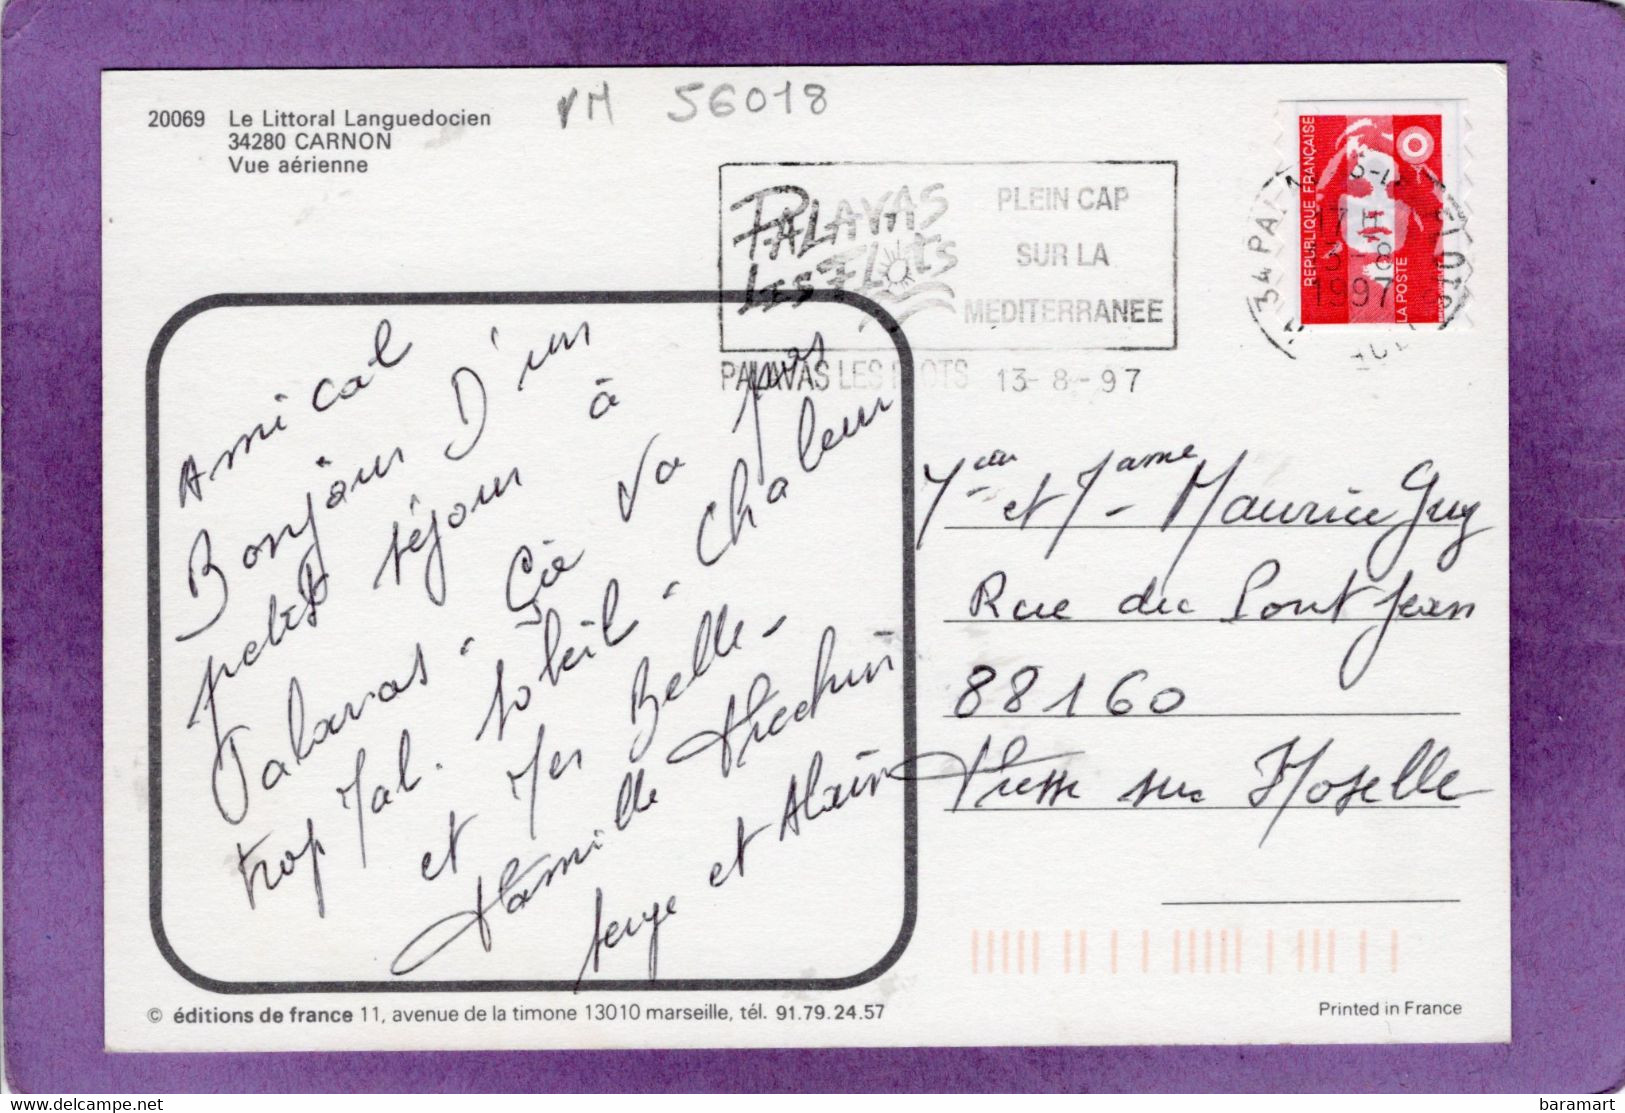 VM 56018
20069 Le Littoral Languedocien
34280 CARNON
Vue aérienne
PALAVAS
LES FLOTS
PLEIN CAP
SUR LA
MEDITERRANEE
PALAVAS LES FLOTS 13-8-97
REPUBLIQUE FRANÇAISE
LA POSTE
34 PALAVAS
17H
13-8
1997
Amical
Bonjour D'un
petit séjour à
Palavas. Cie va pas
trop Mal. Soleil. Chaleur
et Mer Belle -
Famille
Serge et Alain
Mr et Mme Maurice Guy
Rue du Pont Jean
88160
sur Moselle
© éditions de france 11, avenue de la timone 13010 marseille, tél. 91.79.24.57
Printed in France
Delcampe.net
baramart